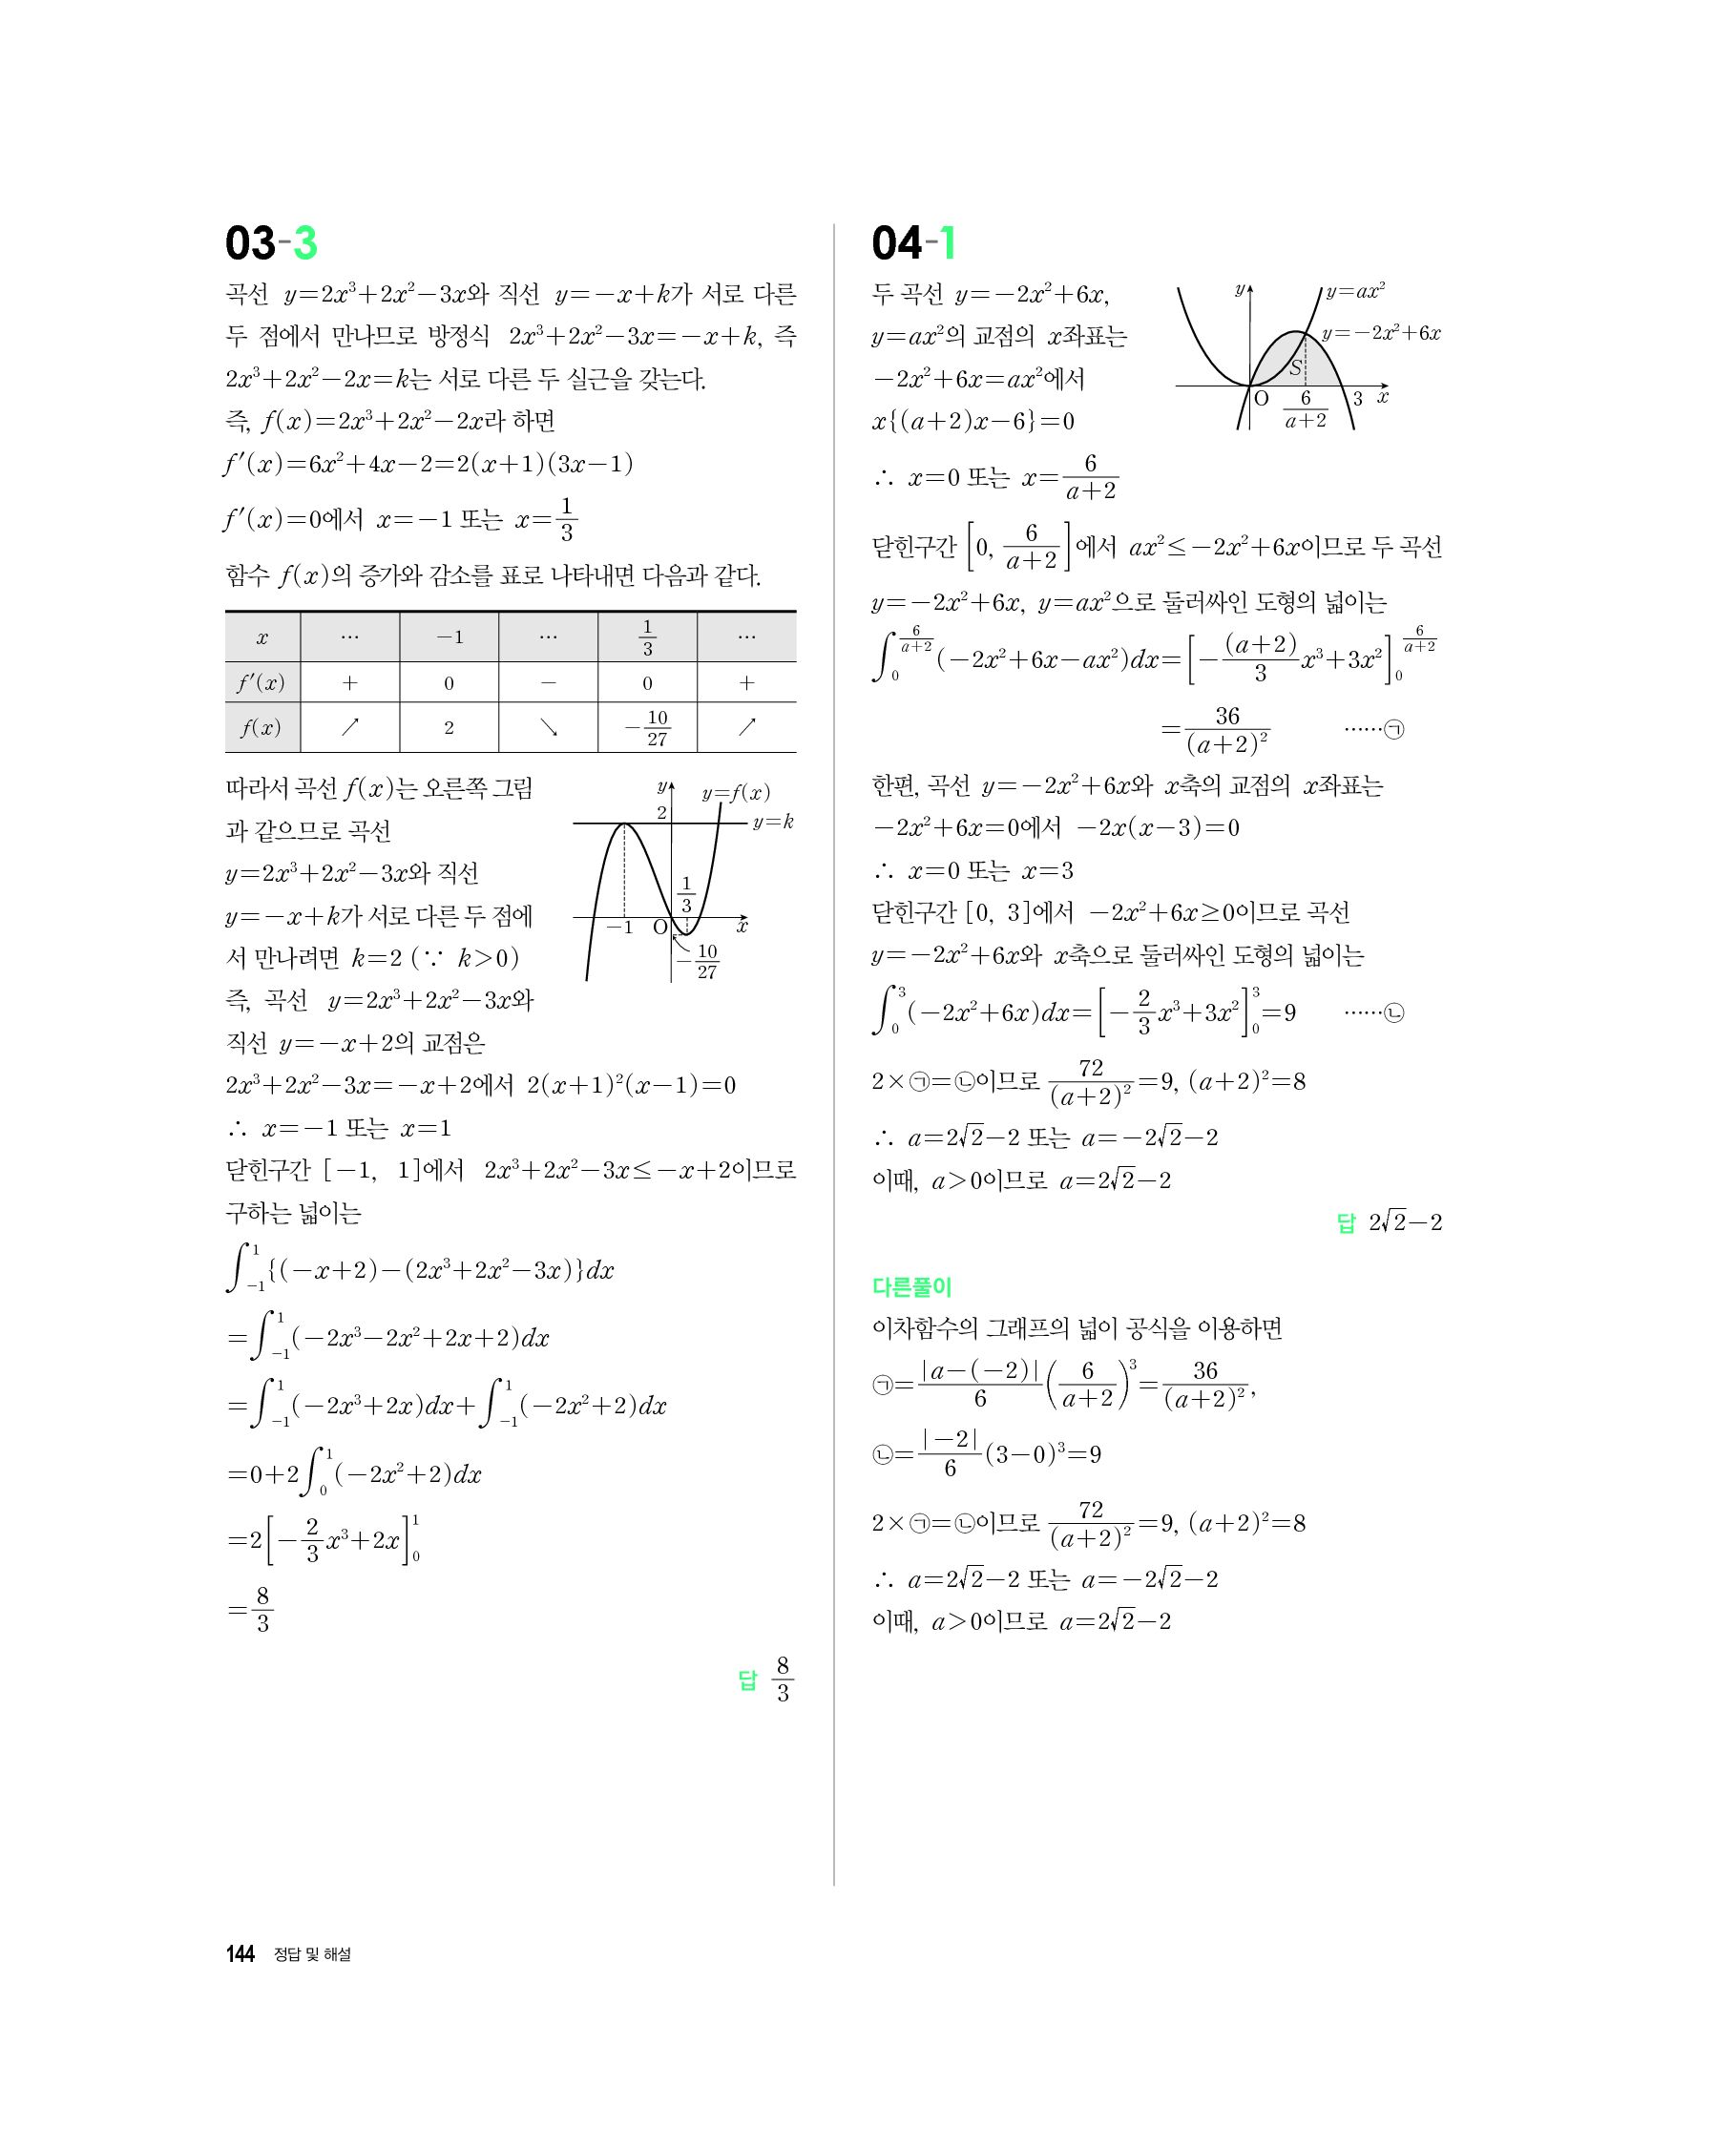 03-3
곡선 y=2x³+2x²-3x와 직선 y=-x+k가 서로 다른
두 점에서 만나므로 방정식 2x³+2x²-3x=-x+k, 즉
2x³+2x²-2x=k는 서로 다른 두 실근을 갖는다.
즉, f(x)=2x³+2x²-2x라 하면
f′(x)=6x²+4x-2=2(x+1)(3x-1)
f′(x)=0에서 x=-1 또는 x=1/3
함수 f(x)의 증가와 감소를 표로 나타내면 다음과 같다.
x … -1 … 1/3 …
f′(x) + 0 - 0 +
f(x) ↗ 2 ↘ -10/27 ↗
따라서 곡선 f(x)는 오른쪽 그림
과 같으므로 곡선
y=2x³+2x²-3x와 직선
y=-x+k가 서로 다른 두 점에
서 만나려면 k=2 (∵ k>0)
즉, 곡선 y=2x³+2x²-3x와
직선 y=-x+2의 교점은
y
y=f(x)
2
y=k
1/3
-1
O
x
-10/27
2x³+2x²-3x=-x+2에서 2(x+1)²(x-1)=0
∴ x=-1 또는 x=1
닫힌구간 [-1, 1]에서 2x³+2x²-3x≤-x+2이므로
구하는 넓이는
∫₋₁¹{(-x+2)-(2x³+2x²-3x)}dx
=∫₋₁¹(-2x³-2x²+2x+2)dx
=∫₋₁¹(-2x³+2x)dx+∫₋₁¹(-2x²+2)dx
=0+2∫₀¹(-2x²+2)dx
=2[-2/3x³+2x]₀¹
=8/3
답 8/3
04-1
두 곡선 y=-2x²+6x,
y=ax²의 교점의 x좌표는
-2x²+6x=ax²에서
x{(a+2)x-6}=0
y
y=ax²
y=-2x²+6x
S
O
6/(a+2)
3
x
∴ x=0 또는 x=6/(a+2)
닫힌구간 [0, 6/(a+2)]에서 ax²≤-2x²+6x이므로 두 곡선
y=-2x²+6x, y=ax²으로 둘러싸인 도형의 넓이는
∫₀^(6/(a+2))(-2x²+6x-ax²)dx=[-(a+2)/3x³+3x²]₀^(6/(a+2))
=36/(a+2)² ……㉠
한편, 곡선 y=-2x²+6x와 x축의 교점의 x좌표는
-2x²+6x=0에서 -2x(x-3)=0
∴ x=0 또는 x=3
닫힌구간 [0, 3]에서 -2x²+6x≥0이므로 곡선
y=-2x²+6x와 x축으로 둘러싸인 도형의 넓이는
∫₀³(-2x²+6x)dx=[-2/3x³+3x²]₀³=9 ……㉡
2×㉠=㉡이므로 72/(a+2)²=9, (a+2)²=8
∴ a=2√2-2 또는 a=-2√2-2
이때, a>0이므로 a=2√2-2
답 2√2-2
다른풀이
이차함수의 그래프의 넓이 공식을 이용하면
㉠=|a-(-2)|/6(6/(a+2))³=36/(a+2)²,
㉡=|-2|/6(3-0)³=9
2×㉠=㉡이므로 72/(a+2)²=9, (a+2)²=8
∴ a=2√2-2 또는 a=-2√2-2
이때, a>0이므로 a=2√2-2
144 정답 및 해설